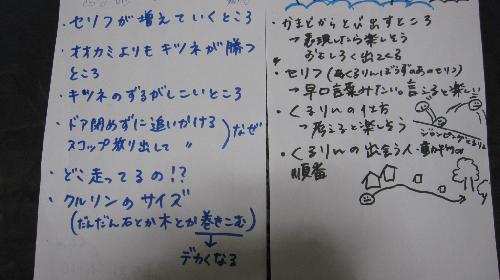 ・セリフが増えていくところ
・オオカミよりもキツネが勝つ
ところ
・キツネのずるがしこいところ
・ドア閉めずに追いかける
スコップ放り出して 〃
なぜ
・どこ走ってるの!?
・クルリンのサイズ
(だんだん石とか木とか巻きこむ)
↓
デカくなる
・かまどからとび出すところ
→表現したら楽しそう
おもしろく出てくる
・セリフ(ぬくるりんぼうずのあのセリフ)
→早口言葉みたい。言えると楽しい
・くるりんの仕方
→考えると楽しそう
ジャンピングくるりん
・くるりんの出会う人・動物の
順番